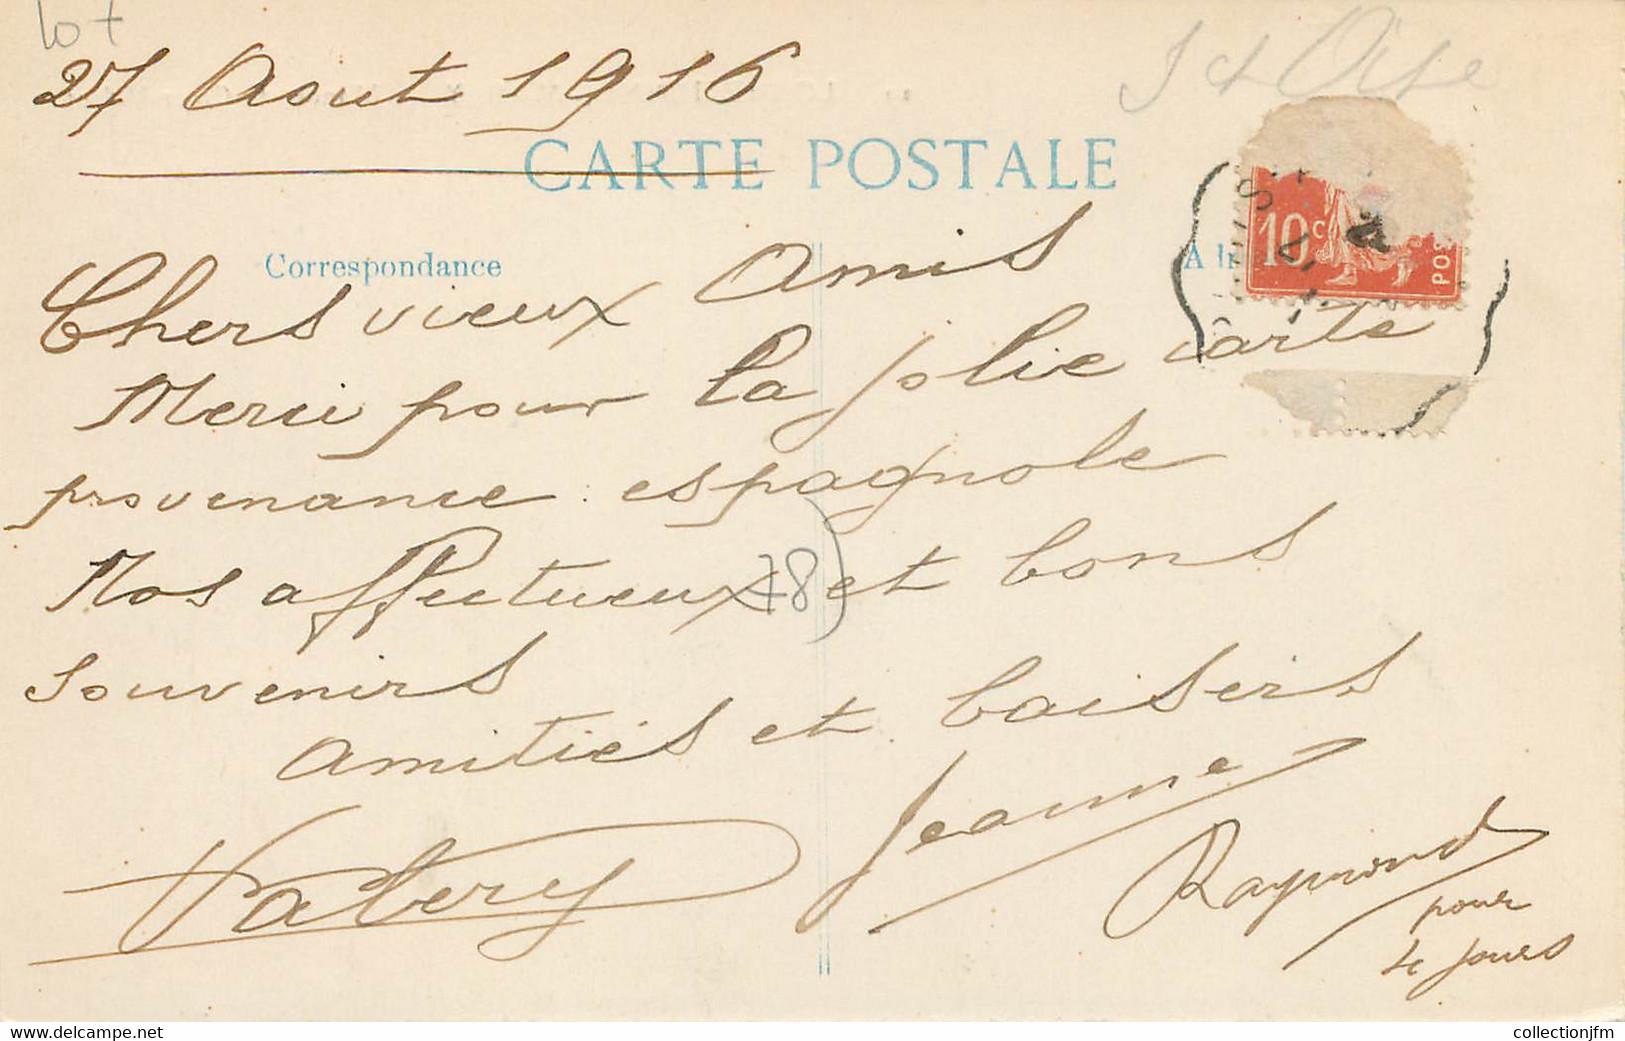 lot
S et Oise
27 Aout 1916
CARTE POSTALE
Correspondance
10 c
POS
Chers vieux Amis
Merci pour la jolie carte
provenance espagnole
(78)
Nos affectueux et bons
souvenirs
amitiés et baisers
Valery
Jeanne
Raymond
pour
4 jours
collectionjfm